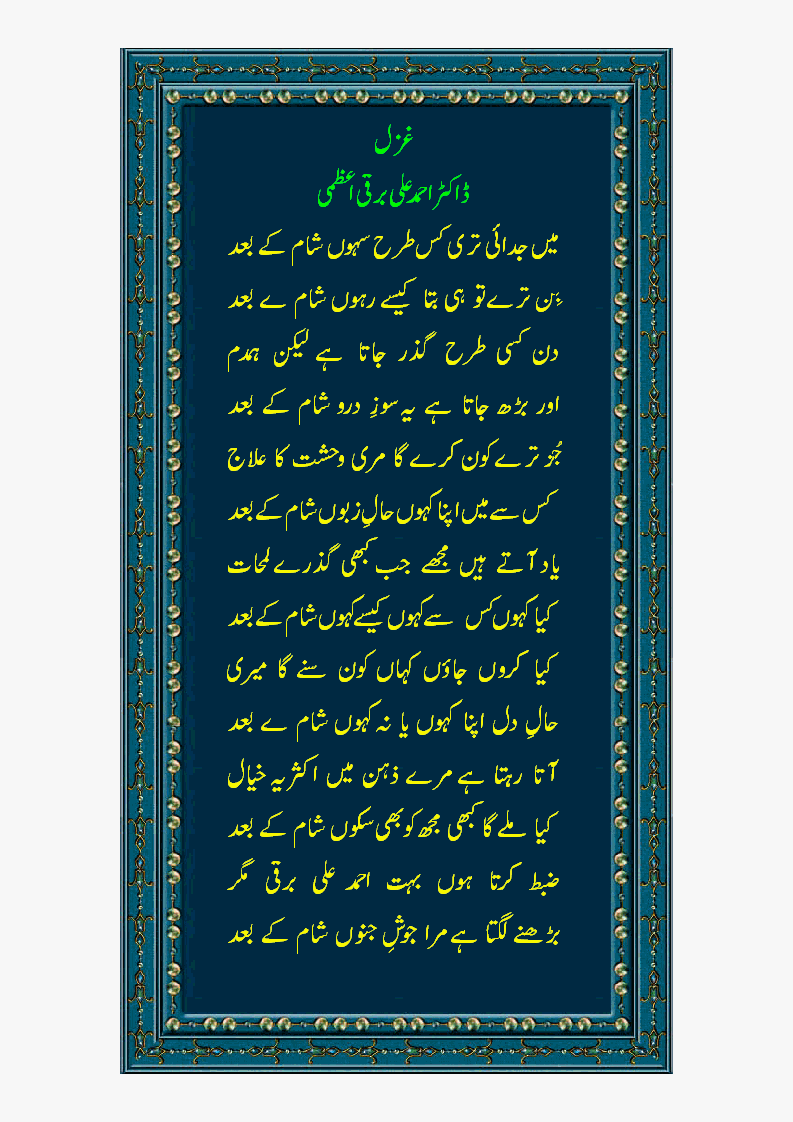 غزل
ڈاکٹر احمد علی برقی اعظمی
میں جدائی تری کس طرح سہوں شام کے بعد
بِن ترے تو ہی بتا کیسے رہوں شام ے بعد
دن کسی طرح گذر جاتا ہے لیکن ہمدم
اور بڑھ جاتا ہے یہ سوزِ درو شام کے بعد
جُز ترے کون کرے گا مری وحشت کا علاج
کس سے میں اپنا کہوں حالِ زبوں شام کے بعد
یاد آتے ہیں مجھے جب کبھی گذرے لمحات
کیا کہوں کس سے کہوں کیسے کہوں شام کے بعد
کیا کروں جاؤں کہاں کون سنے گا میری
حالِ دل اپنا کہوں یا نہ کہوں شام ے بعد
آتا رہتا ہے مرے ذہن میں اکثر یہ خیال
کیا ملے گا کبھی مجھ کو بھی سکوں شام کے بعد
ضبط کرتا ہوں بہت احمد علی برقی مگر
بڑھنے لگتا ہے مرا جوشِ جنوں شام کے بعد